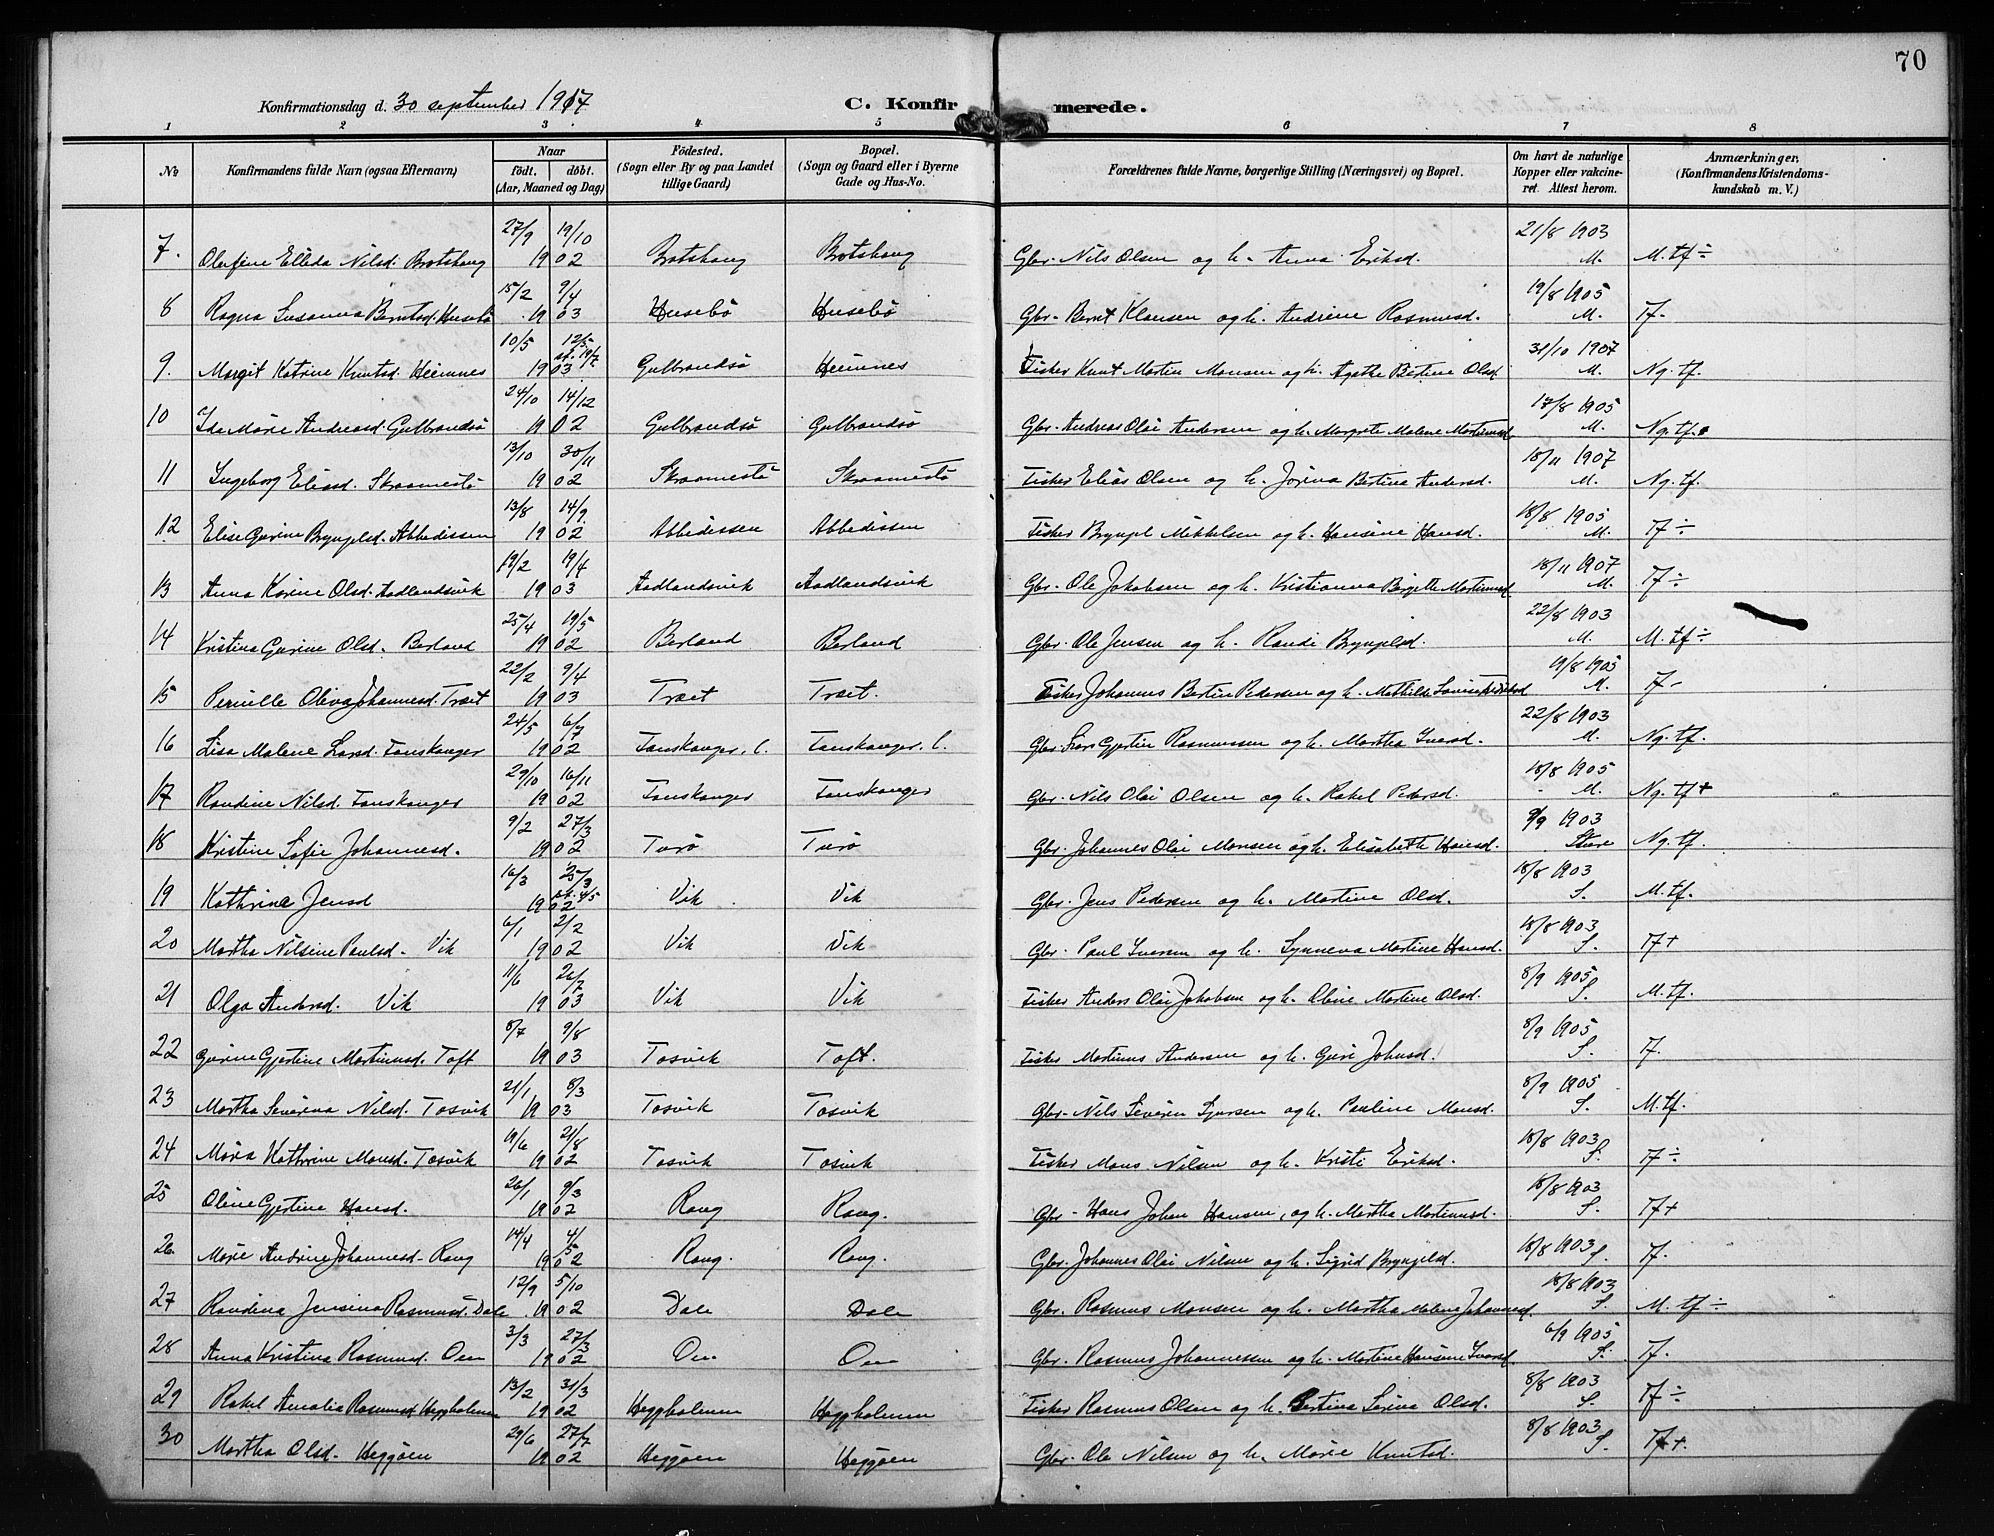 70
Konfirmationsdag d. 30 september 1917 C. Konfirmerede.
1 2 3 4 5 6 7 8
No Konfirmandens fulde Navn (ogsaa Efternavn) Naar født. døbt. (Aar, Maaned og Dag) Fødested. (Sogn eller By og paa Landet tillige Gaard) Bopæl. (Sogn og Gaard eller i Byerne Gade og Hus-No. Forældrenes fulde Navne, borgerlige Stilling (Næringsvei) og Bopæl. Om havt de naturlige Kopper eller vakcineret. Attest herom. Anmærkninger, (Konfirmandens Kristendomskundskab m. V.)
7. Olefine Elleda Nilsd. Brotshaug 27/9 19/10 1902 Brotshaug Brotshaug Gbr. Nils Olsen og h. Anna Eriksd. 21/8 1903 M. M. tf ÷
8 Ragna Susanna Berntsd. Husebø 15/2 9/4 1903 Husebø Husebø Gbr. Bernt Klausen og h. Andrine Rasmusd. 19/8 1905 M. Tf-
9. Margit Katrine Knutsd. Heimnes 10/5 12/5 st. 19/7 1903 Gulbrandsø Heimnes Fisker Knut Martin Monsen og h. Agathe Bertine Olsd 31/10 1907 M. Ng. tf.
10 Ida Marie Andreasd. Gulbrandsø 24/10 14/12 1902 Gulbrandsø Gulbrandsø Gbr. Andreas Olai Andersen og h. Margrete Malene Martinusd 17/8 1905 M. Ng. tf.
11 Ingeborg Eliasd. Skraamestø 13/10 30/11 1902 Skraamestø Skraamestø Fisker Elias Olsen og h. Jorina Bertina Andersd. 18/11 1907 M. Ng. tf.
12 Elise Gurine Bryngelsd. Abbedissen 13/8 14/9 1902 Abbedissen Abbedissen Fisker Bryngel Mikkelsen og h. Hansine Hansd. 18/8 1905 M. Tf ÷
13 Anna Karine Olsd. Aadlandsvik 19/2 19/4 1903 Aadlandsvik Aadlandsvik Gbr. Ole Jakobsen og h. Kristianna Birgitte Martinusd 18/11 1907 M. Tf ÷
14 Kristina Gurine Olsd. Berland 25/4 19/5 1902 Berland Berland Gbr. Ole Jensen og h. Randi Bryngelsd. 22/8 1903 M. M. tf ÷
15 Pernille Oliva Johannesd. Træet 22/2 9/4 1903 Træet Træet. Fisker Johannes Bertin Pedersen og h. Mathilde Lovise 19/8 1905 M. Tf-
16 Lisa Malene Larsd. Fanskanger 24/5 6/7 1902 Fanskanger, l. Fanskanger, l. Gbr. Lars Gjertin Rasmussen og h. Martha Ivarsd. 22/8 1903 M. Ng. tf.
17 Randine Nilsd. Fanskanger 29/10 16/11 1902 Fanskanger Fanskanger Gbr. Nils Olai Olsen og h. Rakel Pedersd. 18/8 1905 M. Ng. tf +
18 Kristine Sofie Johannesd. 9/2 27/3 1902 Turø Turø Gbr. Johannes Olai Monsen og h. Elisabeth Hansd. 9/9 1903 Sture Ng. tf.
19 Kathrine Jensd 16/3 25/3 st. 4/5 1902 Vik Vik Gbr. Jens Pedersen og h. Martine Olsd. 18/8 1903 S. M. tf.
20 Martha Nilsine Paulsd. Vik 6/1 2/2 1902 Vik Vik Gbr. Paul Iversen og h. Synneva Martine Hansd. 18/8 1903 S. Tf +
21 Olga Andersd. Vik 11/6 26/7 1903 Vik Vik Fisker Anders Olai Jakobsen og h. Oline Martine Olsd. 8/9 1905 S. M. tf.
22 Gurine Gjertine Martinusd. Toft 8/7 9/8 1903 Tosvik Toft. Fisker Martinus Andersen og h. Guri Johnsd. 8/9 1905 S. Tf.
23 Martha Severina Nilsd. Tosvik 21/1 8/3 1903 Tosvik Tosvik Gbr. Nils Severin Sjursen og h. Pauline Monsd. 8/9 1905 S. M. tf.
24 Maria Kathrine Monsd. Tosvik 19/6 21/8 1902 Tosvik Tosvik Fisker Mons Nilsen og h. Kristi Eriksd. 18/8 1903 S. Tf ÷
25 Oline Gjertine Hansd. 26/1 9/3 1902 Rong Rong. Gbr. Hans Johan Hansen, og h. Martha Martinusd. 18/8 1903 S. Tf +
26 Marie Andrine Johannesd. Rong 14/4 4/5 1902 Rong. Rong. Gbr. Johannes Olai Nilsen og h. Sigrid Bryngelsd. 18/8 1903 S. Tf.
27 Randina Jensina Rasmusd. Dale 12/9 5/10 1902 Dale Dale Gbr. Rasmus Monsen og h. Martha Malene Johannesd 18/8 1903 S. M. tf ÷
28 Anna Kristina Rasmusd. Oen 3/3 27/3 1902 Oen Oen Gbr. Rasmus Johannessen og h. Martine Hansine Ivarsd. 6/9 1905 S. Tf.
29 Rakel Amalia Rasmusd Heggholmen 13/2 31/3 1902 Heggholmen Heggholmen Fisker Rasmus Olsen og h. Bertina Serina Olsd. 8/8 1903 S. Tf ÷
30 Martha Olsd. Heggøen 29/6 27/7 1902 Heggøen Heggøen Gbr. Ole Nilsen og h. Marie Knutsd. 8/8 1903 S. Tf +.